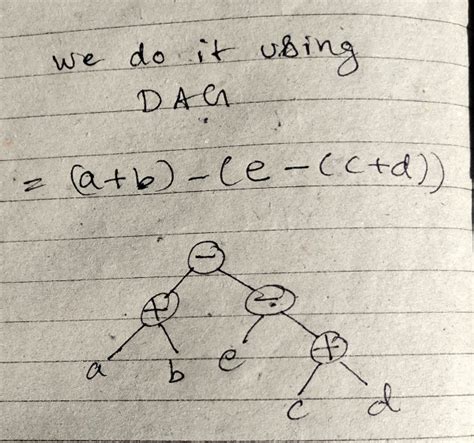 we do it using
DAG
= (a+b) - (e - (c+d))
-
+ -
a b e +
c d